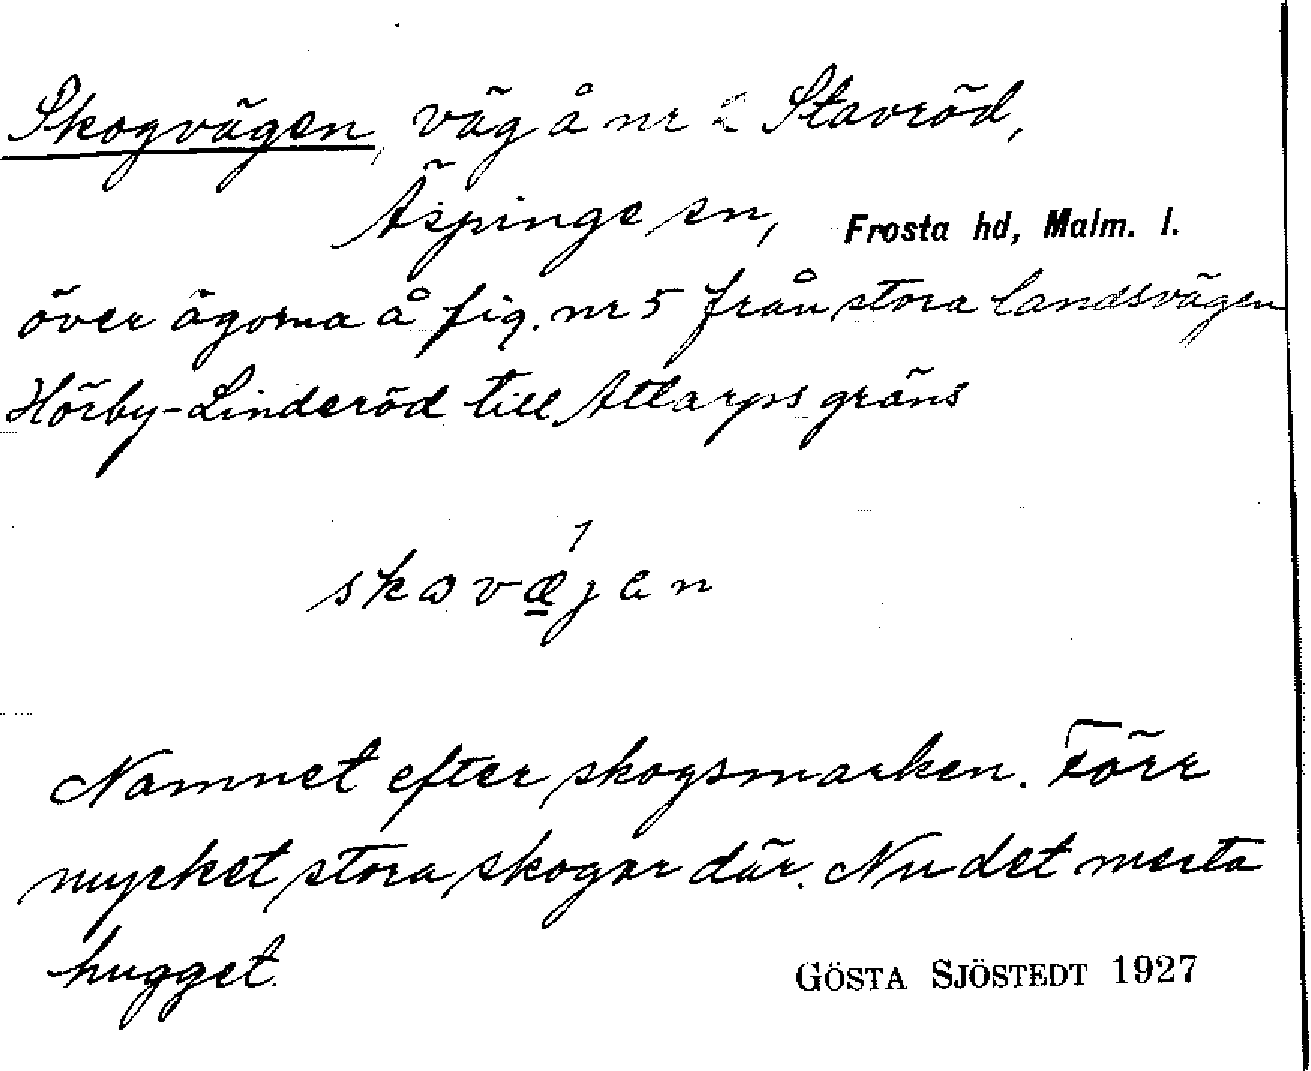 Skogvägen, väg å nr 2 Stavröd,
Äspinge sn, Frosta hd, Malm. l.
över ägorna å fig. nr 5 från stora landsvägen
Hörby-Linderöd till Attarps gräns
skɔvǽ̱jen
Namnet efter skogsmarken. Förr
mycket stora skogar där. Nu det mesta
hugget.
GÖSTA SJÖSTEDT 1927